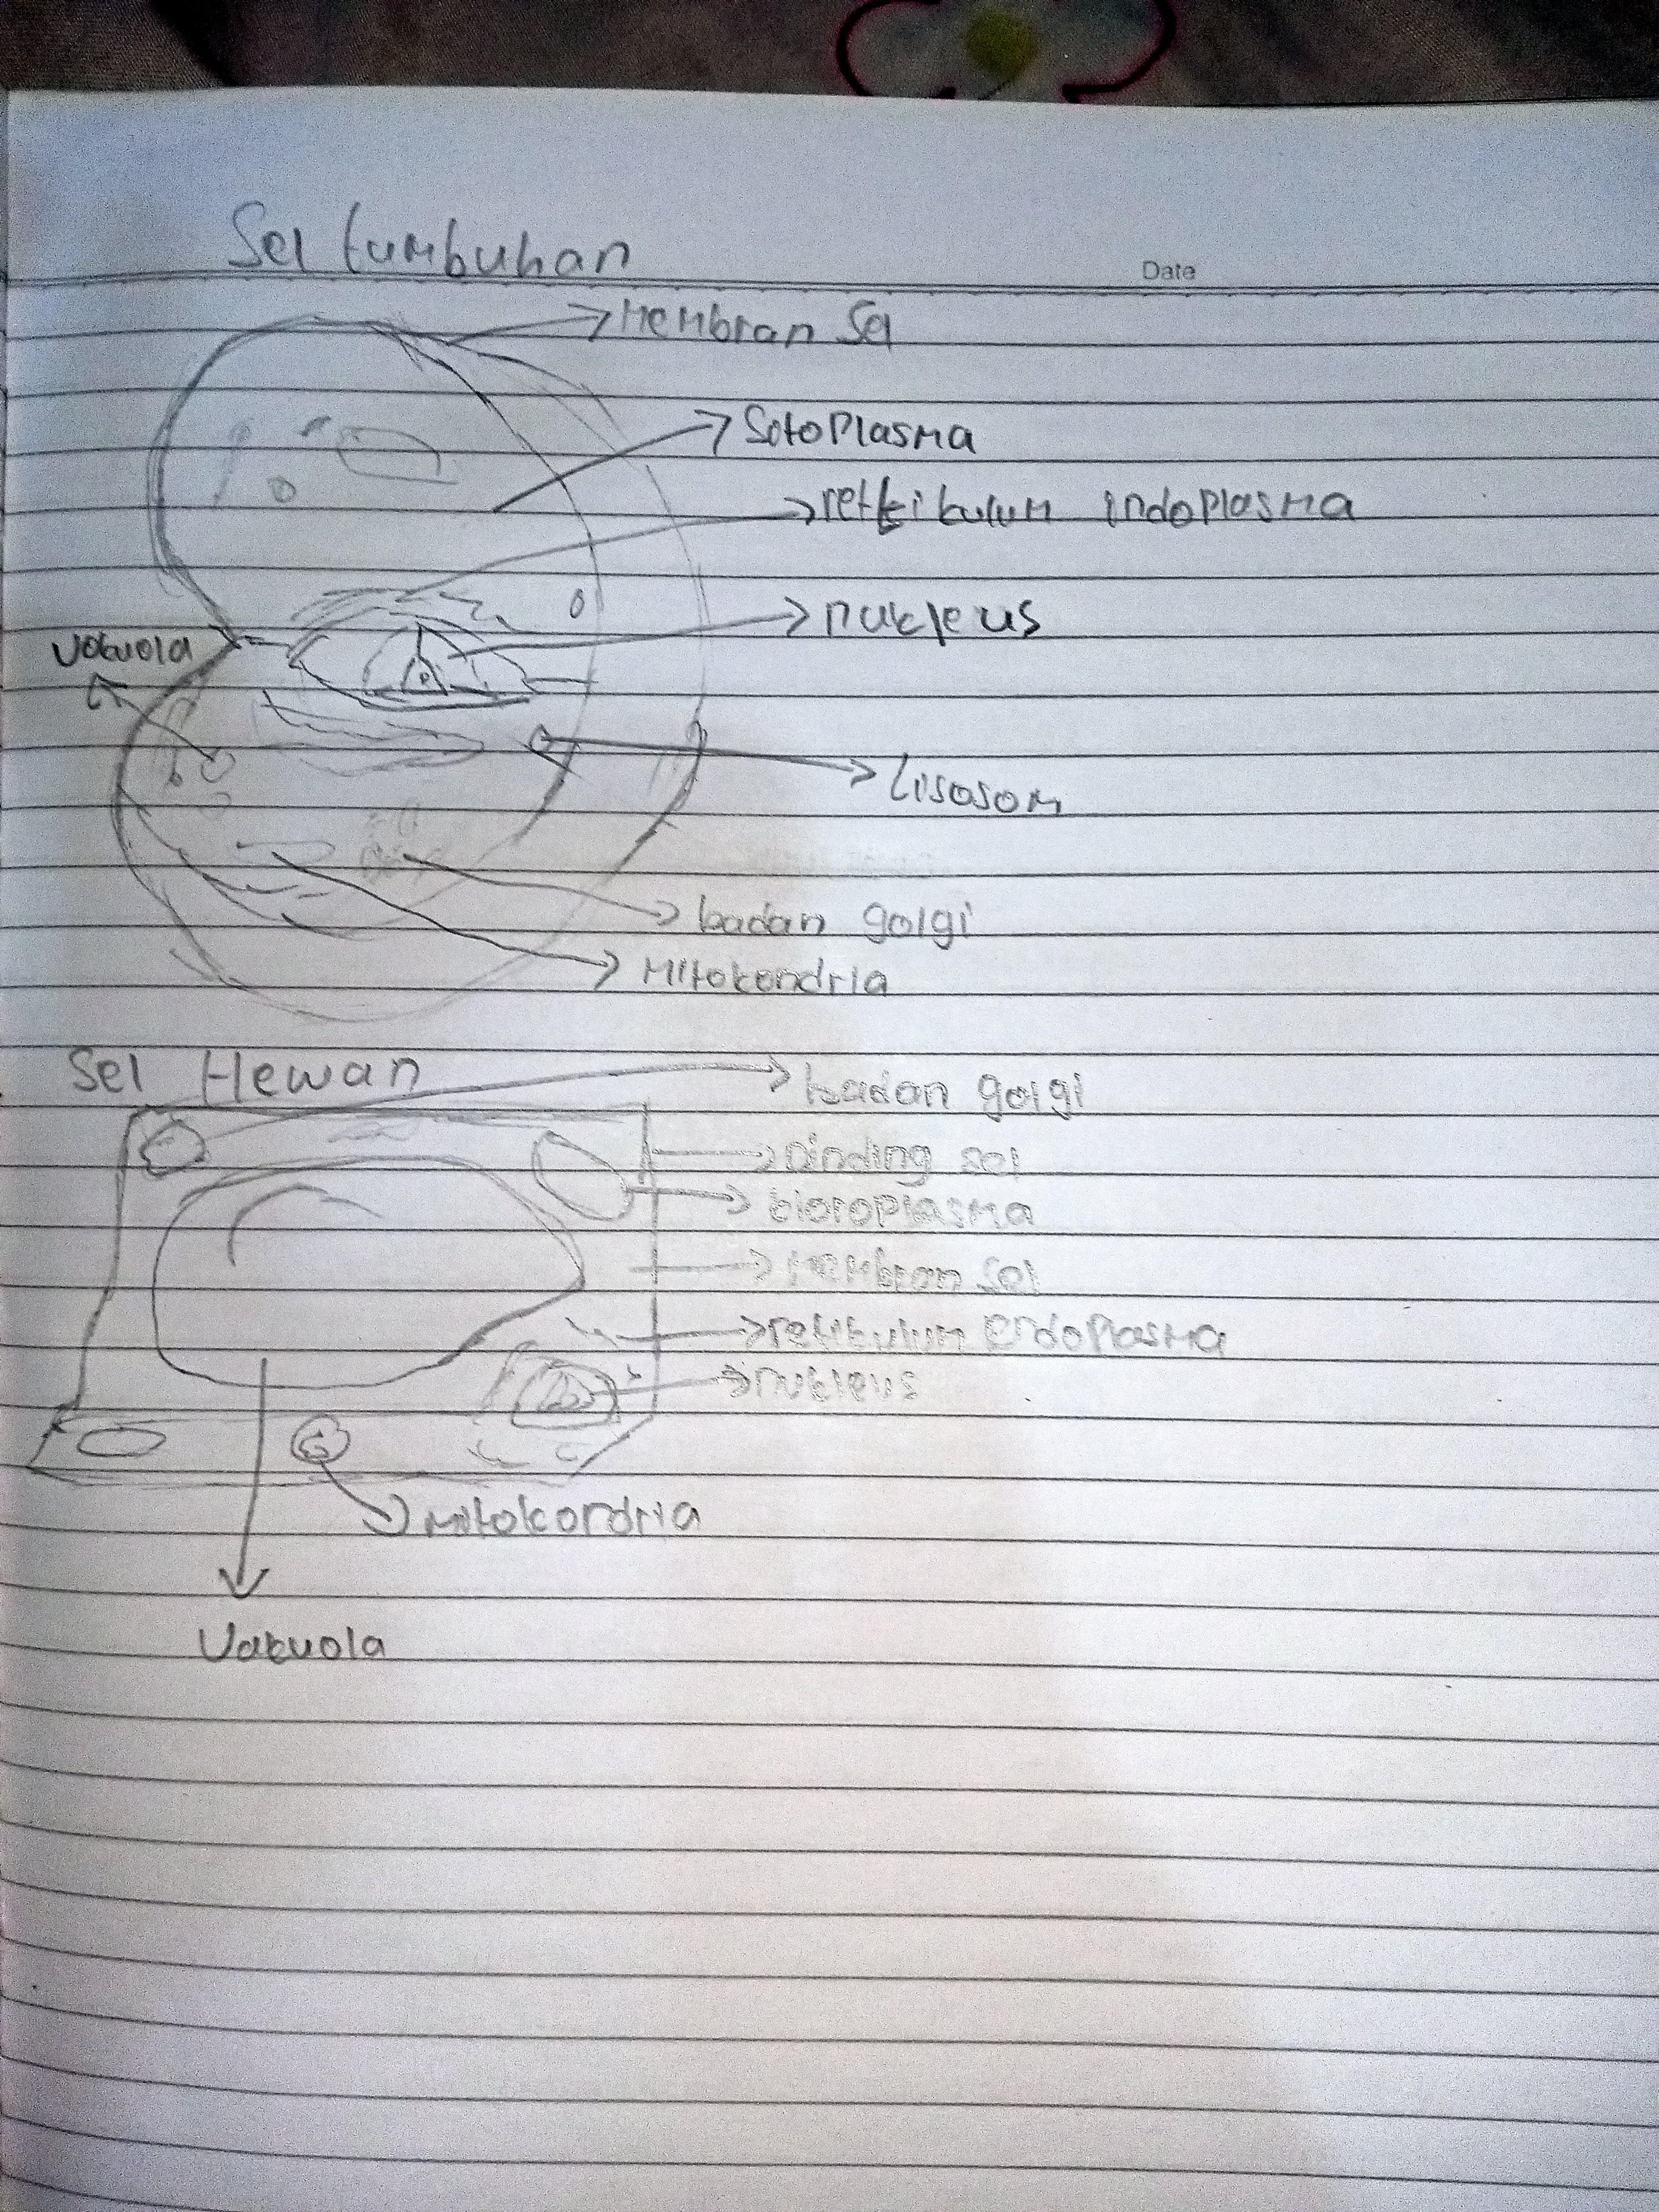 Sel tumbuhan
Date
Membran Sel
Sotoplasma
rettikulum indoplasma
nukleus
Vakuola
Lisosom
badan golgi
Mitokondria
Sel Hewan
badan golgi
Dinding sel
kloroplasma
Membran Sel
retikulum Endoplasma
nukleus
Mitokondria
Vakuola